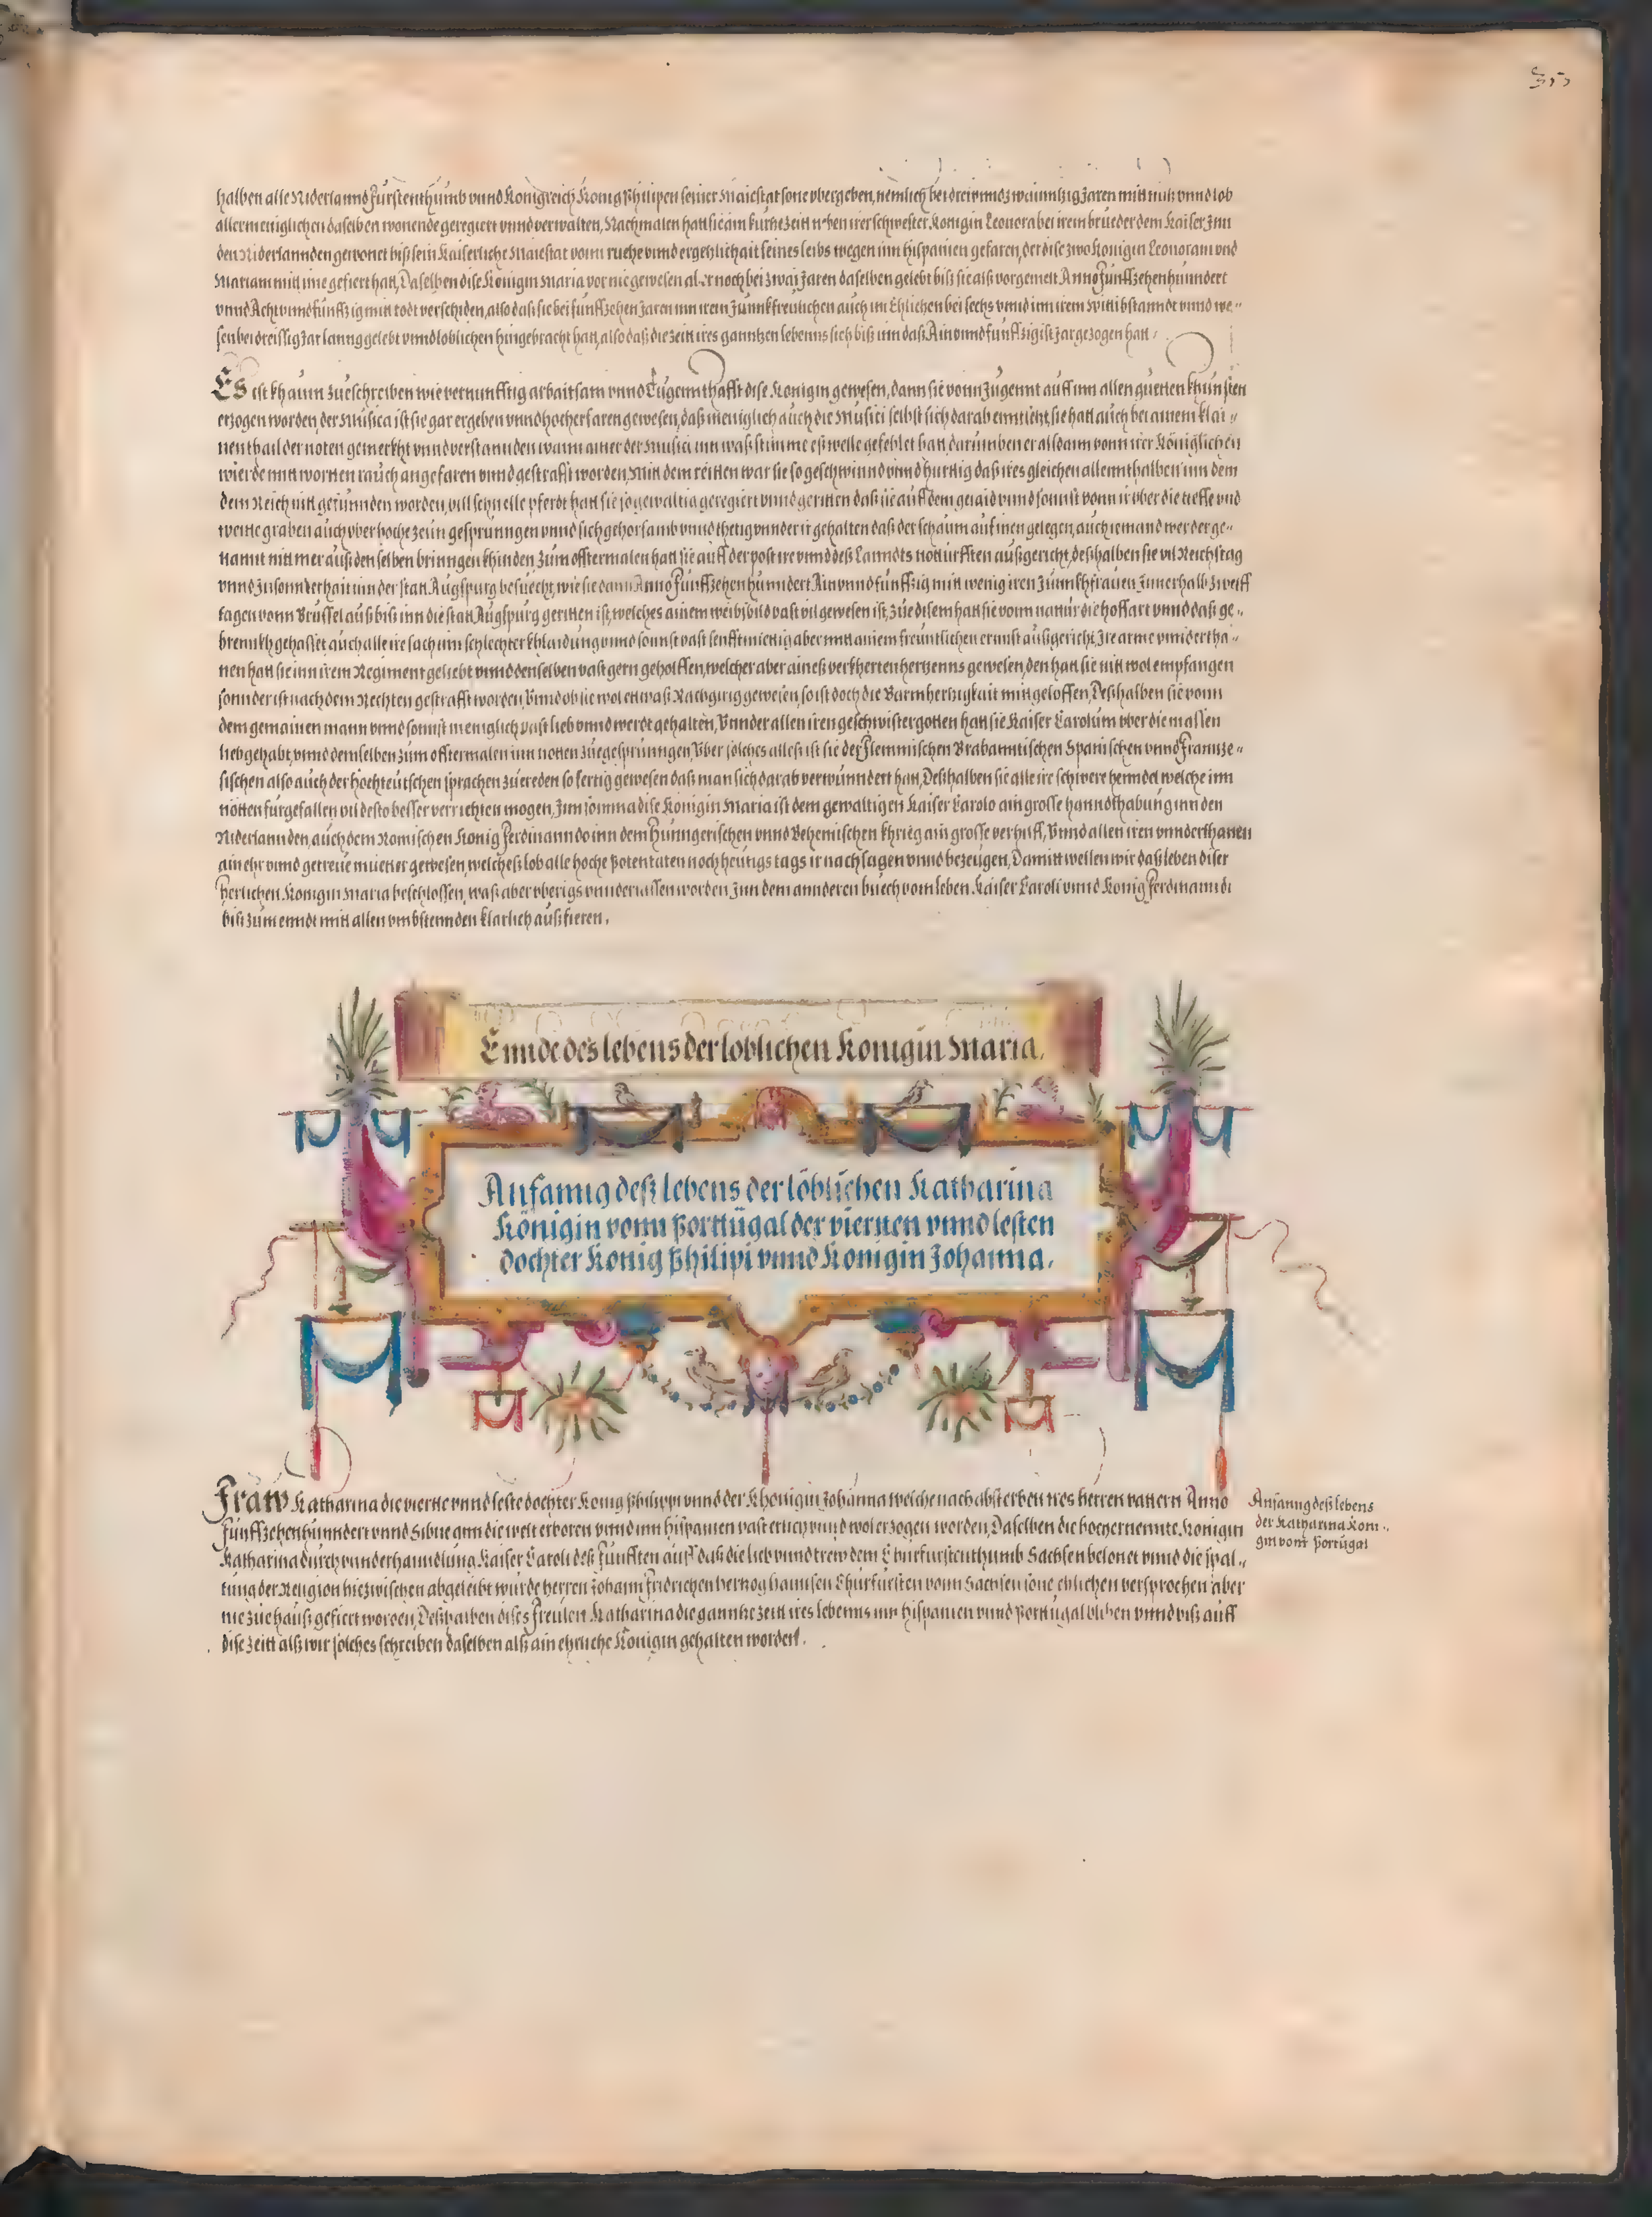 halben alle Niderlannd Fürstenthumb vnnd Königreich König Philipen seiner Maiestat sone vbergeben, nemlich bei dreivndzwainntzig Jaren mit nutz vnnd lob
allermeniglichen daselben wonende geregiert vnnd verwalten, Nachmalen hatt sie ain kurtze zeitt neben irer schwester Königin Leonora bei irem brueder dem Kaiser Inn
den Niderlannden gewonet biß sein Kaiserliche Maiestat vonn ruehe vnnd ergetzlichait seines leibs wegen inn Hispanien gefaren, der dise zwo Königin Leonoram vnd
Mariam mitt ime gefiert hatt, Daselben dise Königin Maria vor nie gewesen aber noch bei zwai Jaren daselben gelebt biß sie alß vorgemelt Anno Fünffzehenhunndert
vnnd Acht vnnd fünffzig mitt todt verschiden, also daß sie bei fünffzehen Jaren inn irem Junnkfreulichen auch im Ehlichen bei sechs vnnd inn irem Wittibstanndt vnnd we-
sen bei dreissig Jar lanng gelebt vnnd loblichen hingebracht hatt, also daß die zeitt ires ganntzen lebenns sich biß inn daß Ain vnnd fünffzigist Jar gezogen hatt.
Es ist khaum zueschreiben wie vernunfftig arbaitsam vnnd Tugennthafft dise Königin gewesen, dann sie vonn Jugennt auff inn allen guetten khunsten
erzogen worden, der Musica ist sie gar ergeben vnnd hocherfaren gewesen, daß meniglich auch die Musici selbst sich darab enntsetzt, sie hatt auch bei ainem klai-
nen thail der noten gemerkht vnnd verstannden wann ainer der Musici inn waß stimme eß welle gefehlet hatt, darumben er alsdann vonn irer Königlichen
wierde mitt wortten rauch angefaren vnnd gestrafft worden, Mitt dem reitten war sie so geschwinnd vnnd hurttig daß ires gleichen allennthalben inn dem
dem Reich nitt gefunnden worden, vill schnelle pferdt hatt sie so gewaltig geregiert vnnd geritten daß sie auff dem gejaid vnnd sonnst vonn ir vber die tieffe vnd
weitte graben auch vber hoche zeun gesprunngen vnnd sich gehorsamb vnnd thetig vnnder ir gehalten daß der schaum auf inen gelegen, auch iemand wer der ge-
nannt nitt mer auß denselben brinngen khinden, Zum offtermalen hatt sie auff der post ire vnnd deß Lanndts notturfften außgericht, deßhalben sie vil Reichstag
vnnd zu sonnderhait inn der statt Augspurg besuecht, wie sie dann Anno Fünffzehenhunndert Ain vnnd fünffzig mitt wenig iren Junnkhfrauen Innerhalb zwelff
tagen vonn Brüssel auß biß inn die statt Augspurg geritten ist, welches ainem weibsbild vast vil gewesen ist, Zue disem hatt sie vonn nattur die hoffart vnnd daß ge-
brennkh gehasset auch alle ire sach inn schlechter khlaidung vnnd sonnst vast sennfftmietig aber mitt ainem freuntlichen ernnst außgericht, Ire arme vnndertha-
nen hatt sie inn irem Regiment geliebt vnnd denselben vast gern geholffen, welcher aber aineß verkherten hertzenns gewesen, den hatt sie nitt wol empfangen
sonnder ist nach dem Rechten gestrafft worden, Vnnd ob sie wol etwaß Rachgirig gewesen, so ist doch die Barmhertzigkait mitt geloffen, Deßhalben sie vonn
dem gemainen mann vnnd sonnst meniglich vast lieb vnnd werdt gehalten, Vnnder allen iren geschwistergotten hatt sie Kaiser Carolum vber die massen
lieb gehabt, vnnd demselben zum offtermalen inn notten zuegesprunngen, Vber solches alles ist sie der Flemmischen Brabanntischen Spanischen vnnd Franntze-
sischen also auch der hochteutschen sprachen zuereden so fertig gewesen daß man sich darab verwunndert hatt, Deßhalben sie alle ire schwere henndel welche inn
nötten fürgefallen vil desto besser verrichten mogen, Inn somma dise Königin Maria ist dem gewaltigen Kaiser Carolo ain grosse hanndthabung inn den
Niderlannden, auch dem Römischen König Ferdinanndo inn dem Hunngerischen vnnd Behemischen khrieg ain grosse verhilff, Vnnd allen iren vnnderthanen
ain ehr vnnd getreue muetter gewesen, welcheß lob alle hoche Potentaten noch heutigs tags ir nachsagen vnnd bezeugen, Damitt wellen wir daß leben diser
herrlichen Königin Maria beschlossen, waß aber vberigs vnnderlassen worden Inn dem annderen buech vom leben Kaiser Caroli vnnd König Ferdinanndi
biß zum ennde mitt allen vmbstennden klarlich außfieren.
Ennde des lebens der loblichen Konigin Maria.
Anfanng deß lebens der löblichen Katharina
Königin vonn Porttugal der vierten vnnd lesten
dochter König Philipi vnnd Konigin Johanna.
Fraw Katharina die vierte vnnd leste dochter König Philippi vnnd der Khönigin Johanna welche nach absterben ires herren vattern Anno
Fünffzehenhunndert vnnd Sibne ann die welt erboren vnnd inn Hispanien vast erlich vnnd wol erzogen worden, Daselben die hochernennte Königin
Katharina durch vnnderhanndlung Kaiser Caroli deß Fünfften auff daß die lieb vnnd trew dem Churfürstenthumb Sachsen belonet vnnd die spal-
tung der Religion hiezwischen abgeleibt wurde herren Johann Fridrichen hertzog hannsen Churfürsten vonn Sachsen sone ehlichen versprochen aber
nie zue hauß gefiert worden, Deßhalben dises Freulen Katharina die ganntze zeitt ires lebenns inn Hispanien vnnd Porttugal bliben vnnd biß auff
dise zeitt alß wir solches schreiben daselben alß ain ehrliche Königin gehalten worden.
Anfanng deß lebens
der Katharina Köni-
gin vonn Portugal